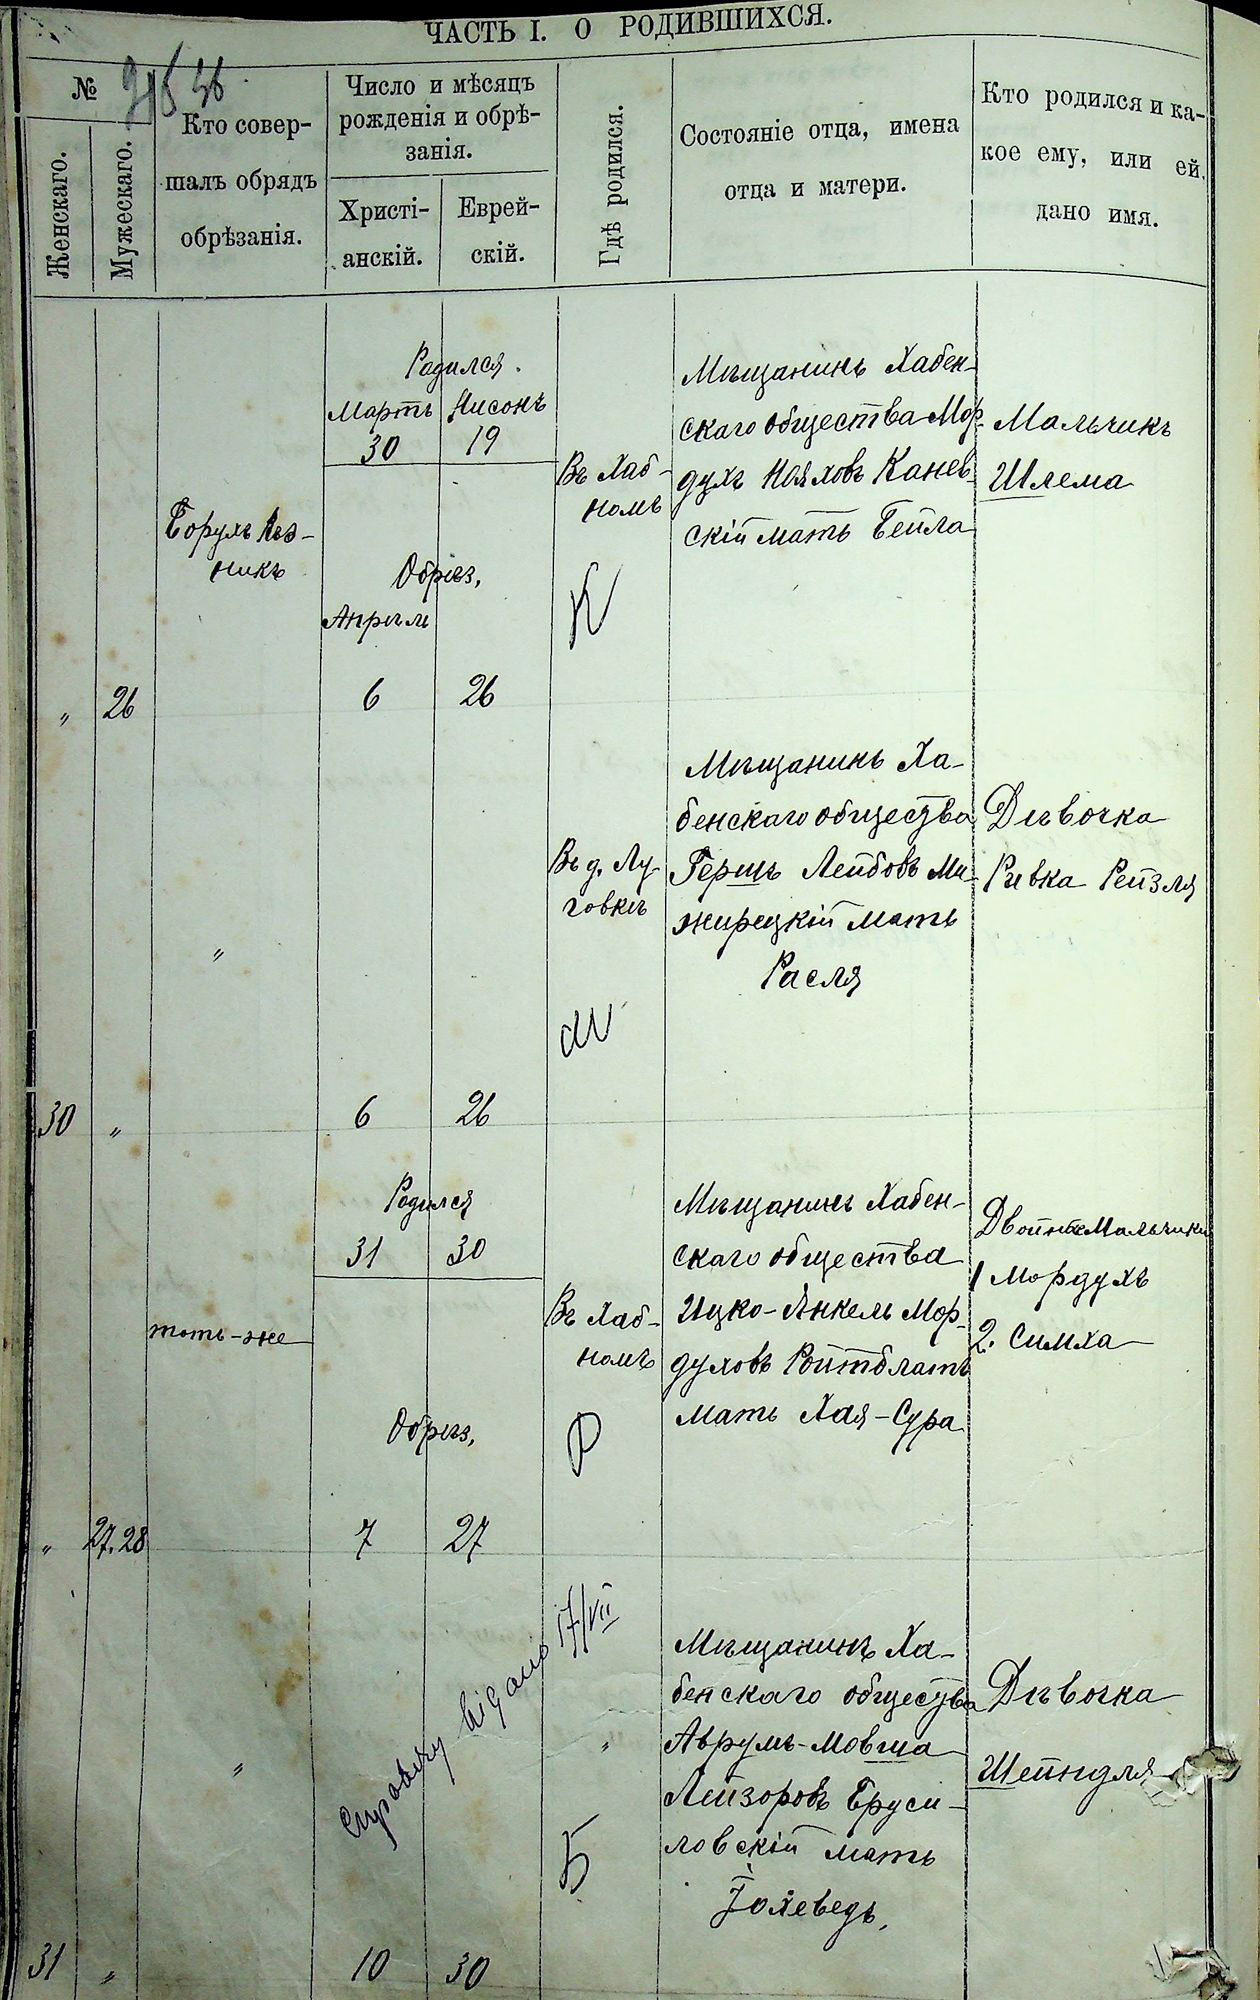 ЧАСТЬ I. О РОДИВШИХСЯ.
№
Женскаго.
Мужескаго.
Кто совер-
шалъ обрядъ
обрѣзанія.
Число и мѣсяцъ
рожденія и обрѣ-
занія.
Христі-
анскій.
Еврей-
скій.
Гдѣ родился.
Состояніе отца, имена
отца и матери.
Кто родился и ка-
кое ему, или ей,
дано имя.
Родился.
Мартъ Нисонъ
30 19
Борухъ Рѣз-
никъ
Обрѣз,
Апрѣля
„ 26 6 26
Въ Хаб-
номъ
К
Мѣщанинъ Хабен-
скаго общества Мор-
духъ Нояховъ Канев-
скій мать Бейла
Мальчикъ
Шлема
„
Въ д. Лу-
говкѣ
М
Мѣщанинъ Ха-
бенскаго общества
Гершъ Лейбовъ Ме-
жирецкій мать
Расля
Дѣвочка
Ривка Рейзля
30 „ 6 26
Родился
31 30
тотъ-же
Обрѣз,
„ 27.28 7 27
Въ Хаб-
номъ
Р
Мѣщанинъ Хабен-
скаго общества
Ицко-Янкель Мор-
духовъ Ройтблатъ
мать Хая-Сура
Двойни Мальчики
1 Мордухъ
2. Симха
„
Справку видано 17/VII
„
Б
Мѣщанинъ Ха-
бенскаго общества
Аврумъ-Мовша
Лейзоровъ Еруси-
ловскій мать
Іохеведъ,
Дѣвочка
Шейндля
31 „ 10 30